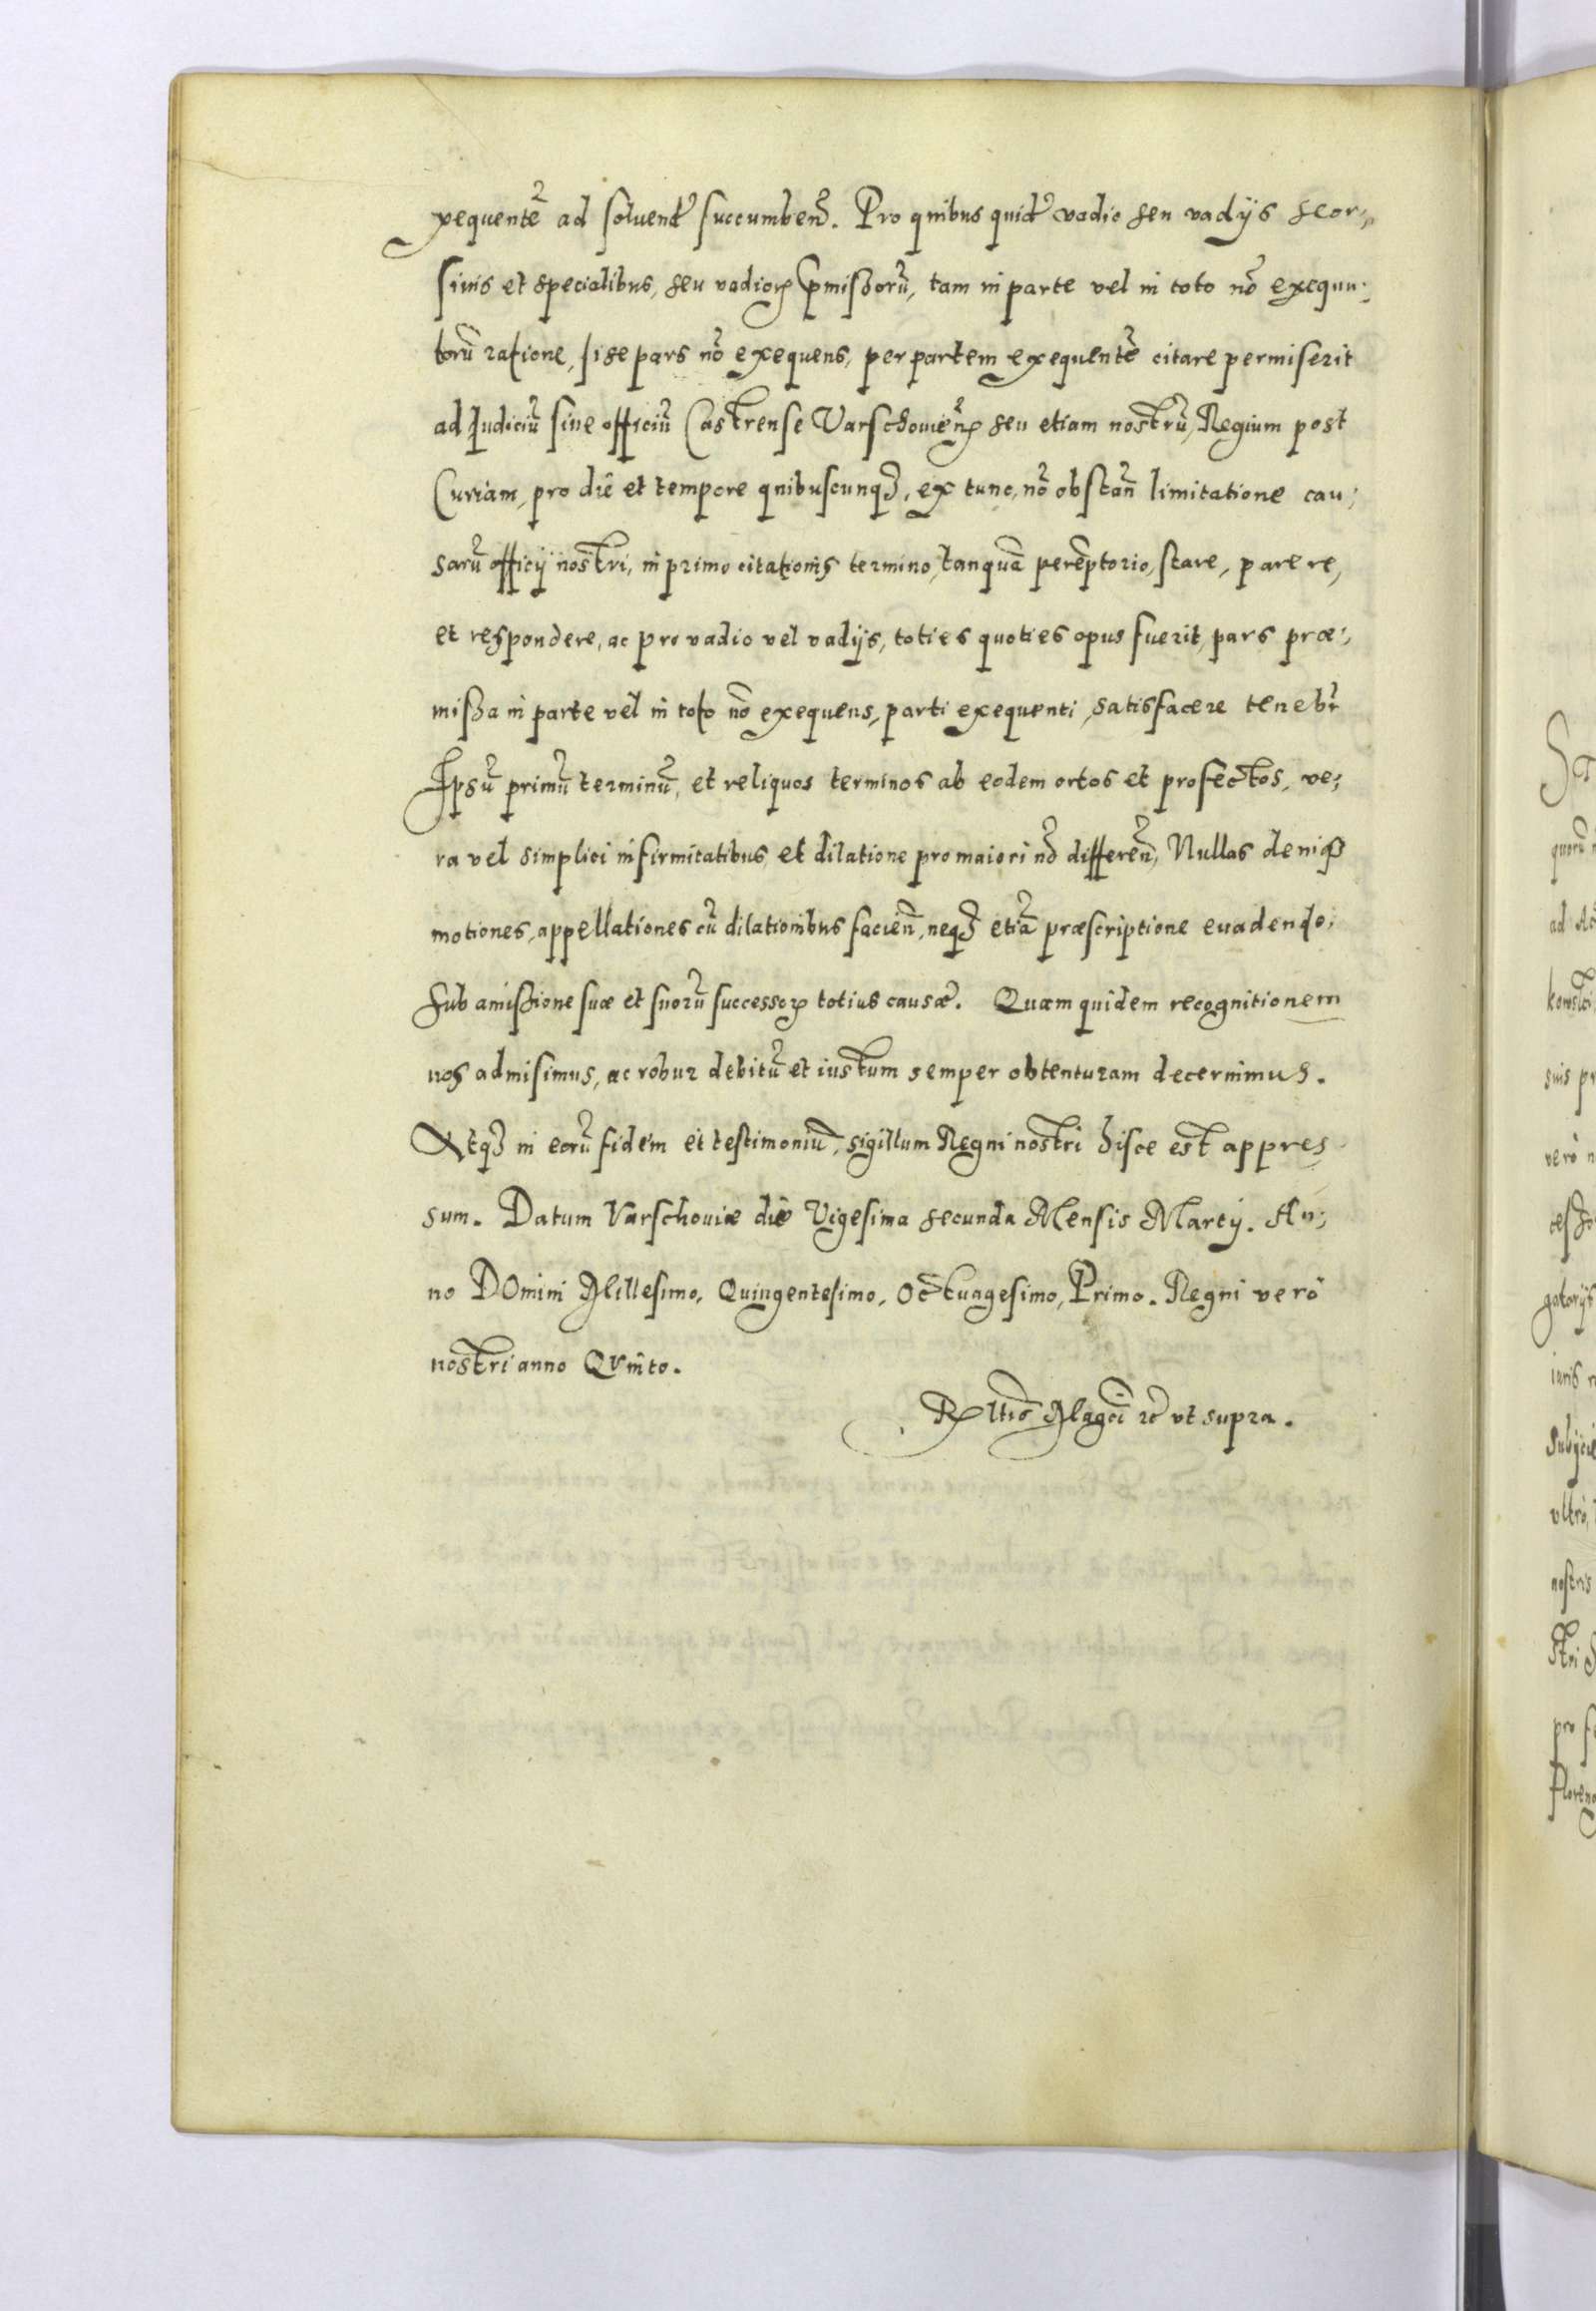 xequentẽ ad soluend̃ succumben̄. Pro quibus quid̃ vadio seu vadijs seor⸗
siuis et specialibus, seu vadioꝝ p̃missorũ, tam in parte vel in toto nõ exequu⸗
torũ ratione, si se pars nõ exequens, per partem exequentẽ citare permiserit
ad Iudiciũ siue officiũ Castrense Varschouieñ seu etiam nostrũ, Regium post
Curiam, pro die et tempore quibuscunqꝫ, ex tunc, nõ obstan̄ limitatione cau⸗
sarũ officij nostri, in primo citationis termino, tanquã perẽptorio, stare, parere,
et respondere, ac pro vadio vel vadijs, toties quoties opus fuerit, pars præ⸗
missa in parte vel in toto nõ exequens, parti exequenti, satisfacere tenebr̃
Ipsũ primũ terminũ, et reliquos terminos ab eodem ortos et profectos, ve⸗
ra vel simplici infirmitatibus, et dilatione pro maiori nõ differen̄, Nullas deniqꝫ
motiones, appellationes cũ dilationibus facien̄, neqꝫ etiã præscriptione euadendo,
sub amissione suæ et suorũ successoꝝ totius causæ. Quam quidem recognitionem
nos admisimus, ac robur debitũ et iustum semper obtenturam decernimus.
Atqꝫ in eorũ fidem et testimoniũ, sigillum Regni nostri hisce est appres⸗
sum. Datum Varschouiæ die Vigesima secunda Mensis Martij. An⸗
no DOmini Millesimo, Quingentesimo, Octuagesimo, Primo. Regni vero
nostri anno Quinto.
Rltiõ Magci ꝛc vt supra.